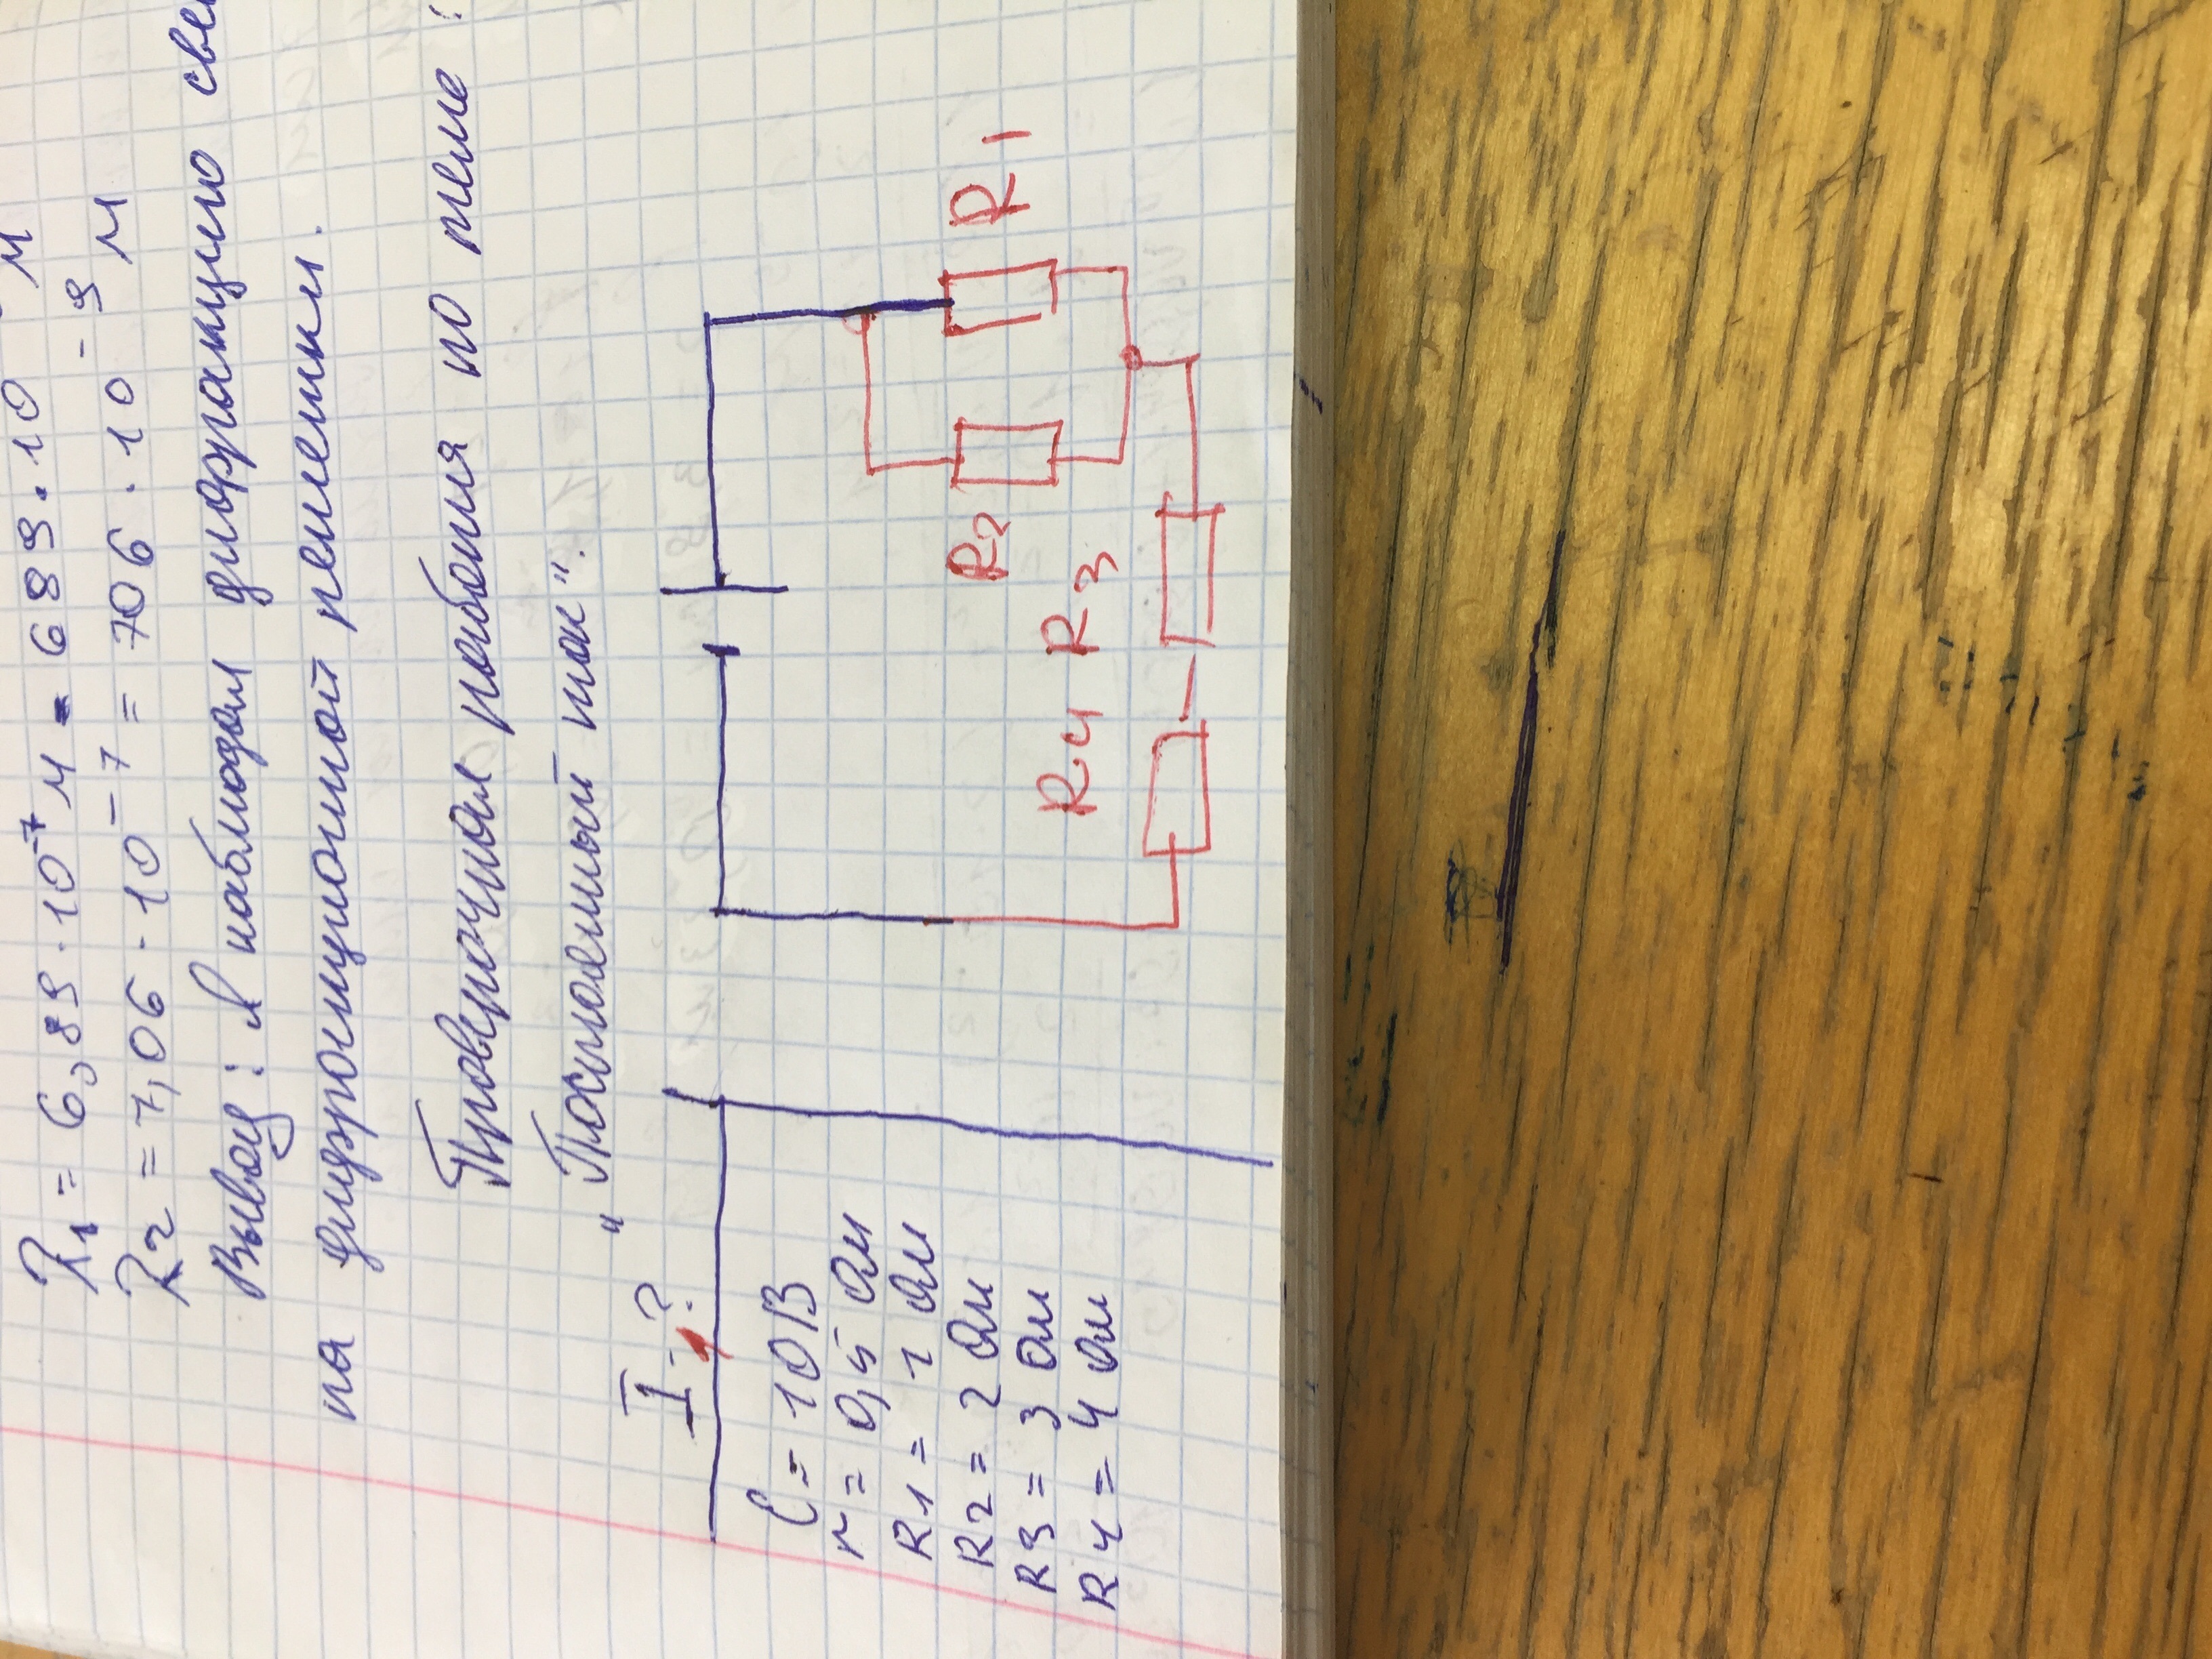 λ1 = 6,89·10⁻⁷ м = 689·10 м
λ2 = 7,06·10⁻⁷ = 706·10⁻⁹ м
Вывод: я наблюдал дифракцию све
на дифракционной решетки.
Проверочная работа по теме:
"Постоянный ток".
I-?
ℰ = 10В
r = 0,5 Ом
R1 = 1 Ом
R2 = 2 Ом
R3 = 3 Ом
R4 = 4 Ом
R1
R2
R4 R3